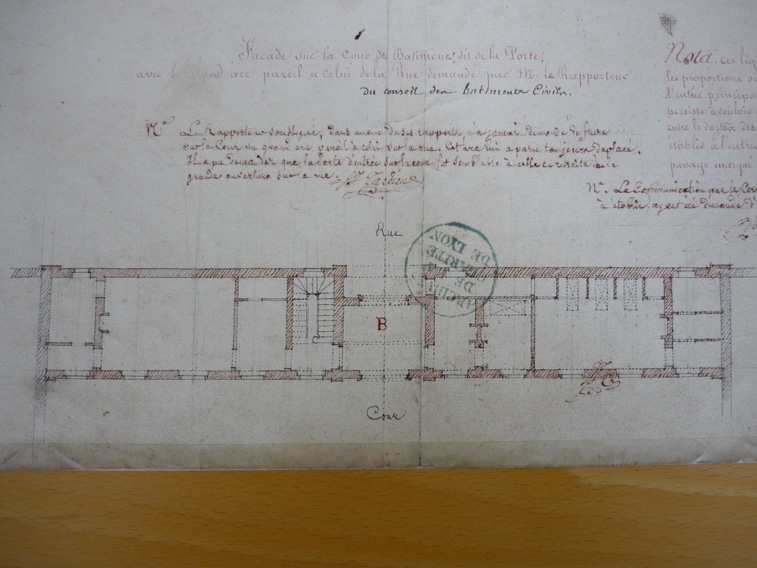 Facade sur la Cour du Batiment dit de la Porte,
avec le grand arc pareil a celui de la Rue demandé par M. le Rapporteur
du conseil des Batiments Civils.
Nota. ces lig
les proportions
l'entrée principa
persiste a vouloir
établi a l'entrée
passage marqué
Nta. Le Rapporteur soussigné, dans aucun de ses rapports, n'a jamais demandé de faire
sur la Cour un grand arc pareil à celui sur la rue. Cet arc lui a paru toujours déplacé.
Il a pu demander que la porte d'entrée sur la cour fut semblable à celle
grande ouverture sur la rue.
Nta. La Communication par le
Rue
ARCHIVES
DE
CHARITÉ
DE LYON
B
Cour